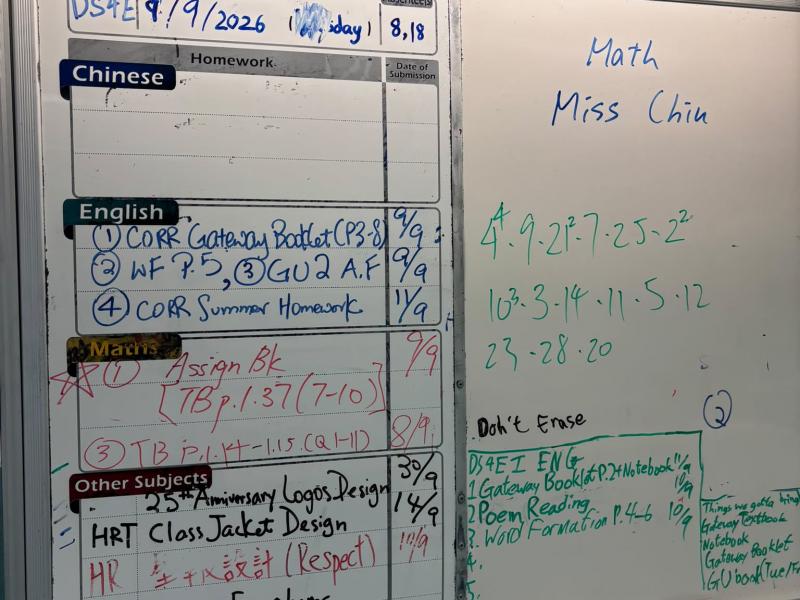 DS4E 9/9/2026 day) 8,18
Homework
Date of Submission
Chinese
English
① CORR Gateway Booklet (P3-8) 9/9
② WF P.5, ③ GU2 A.F 9/9
④ CORR Summer Homework 11/9
Maths
① Assign Bk 9/9
[TB p.1.37 (7-10)]
③ TB p.1.14-1.15 (Q1-11) 8/9
Other Subjects
25th Anniversary Logos Design 30/9
HRT Class Jacket Design 14/9
HR 設計 (Respect)
Math
Miss Chiu
4⁴·9·21²·7·25·2²
10³·3·14·11·5·12
23·28·20
②
Don't Erase
DS4E1 ENG
1 Gateway Booklet P.2+Notebook 11/9
2 Poem Reading 10/9
3. Word Formation P.4-6 10/9
4.
5.
Things we gotta bring
Gateway Textbook
Notebook
Gateway Booklet
GU book (Tue/Fr